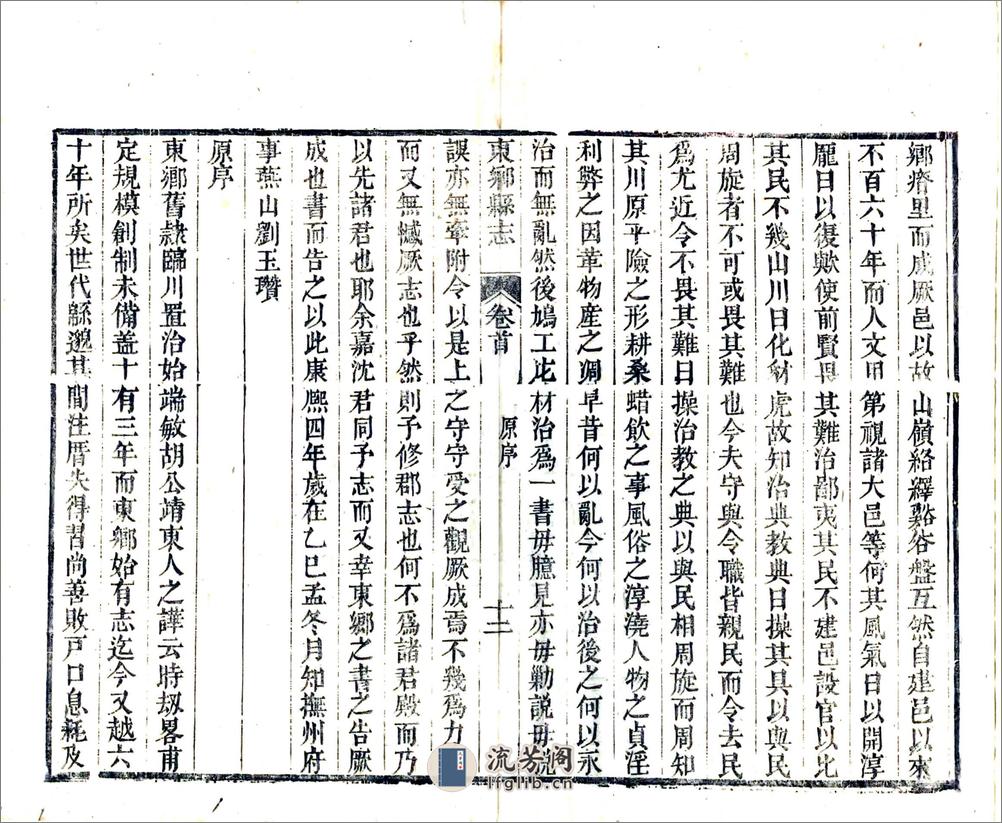 鄉瘠里而成厥邑以故山嶺絡繹谿谷盤互然自建邑以來
不百六十年而人文甲第視諸大邑等何其風氣日以開淳
龎日以復歟使前賢畏其難治鄙夷其民不建邑設官以比
其民不幾山川日化豺虎故知治典教典日操其具以與民
周旋者不可或畏其難也今夫守與令職皆親民而令去民
爲尤近令不畏其難日操治教之典以與民相周旋而周知
其川原平險之形耕桑蜡飲之事風俗之淳澆人物之貞淫
利弊之因革物産之凋阜昔何以亂今何以治後之何以永
治而無亂然後鳩工庀材治爲一書毋臆見亦毋勦説毋訛
東鄉縣志
卷首
原序
十二
誤亦無牽附令以是上之守守受之觀厥成焉不幾爲力
而又無憾厥志也乎然則予修郡志也何不爲諸君殿而乃
以先諸君也耶余嘉沈君同予志而又幸東鄉之書之告厥
成也書而告之以此康熙四年歲在乙巳孟冬月知撫州府
事蕪山劉玉瓚
原序
東鄉舊隸臨川置治始端敏胡公靖東人之譁云時刼畧甫
定規模創制未備盖十有三年而東鄉始有志迄今又越六
十年所矣世代緜邈其間注厝失得習尚善敗戸口息耗及
流芳阁
lfglib.cn